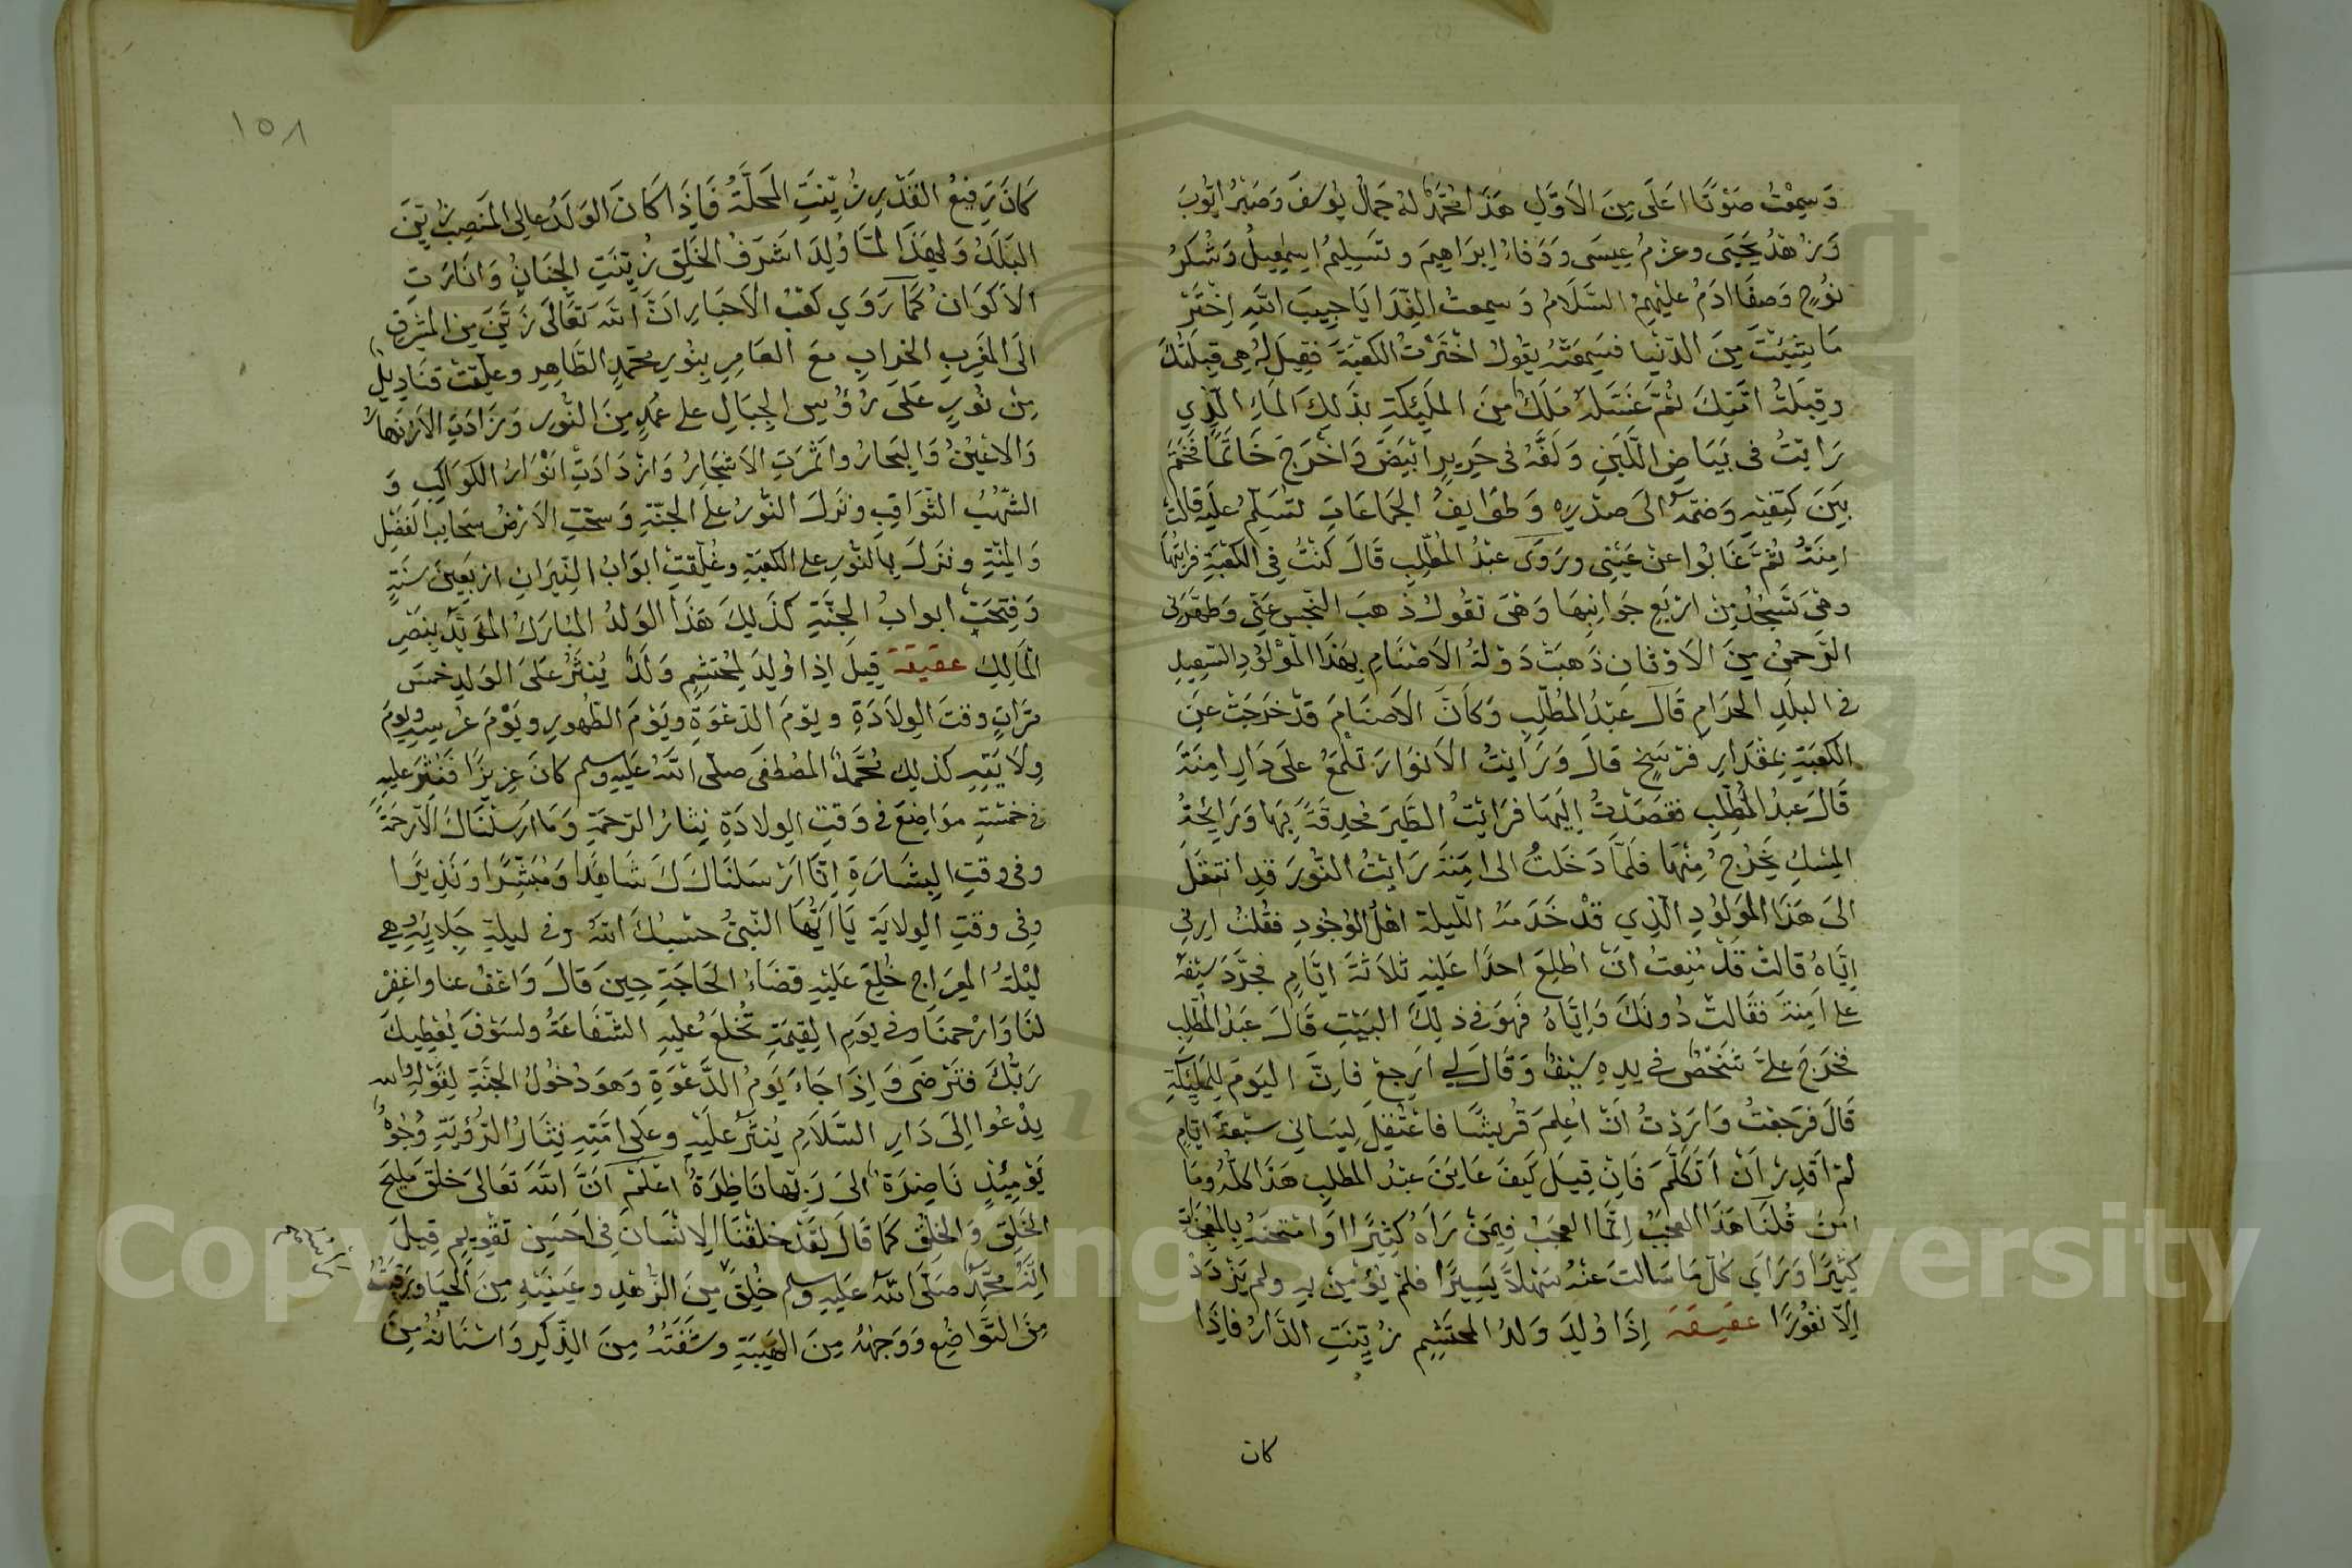 وَسَمِعْتُ صَوْتًا اَعلَى مِنَ الاَوَّلِ هَذَا مُحَمَّدٌ لهُ جَمالُ يُوسُفَ وَصَبْرُ اَيُّوبَ
وَزُهْدُ يَحْيَى وعزمُ عِيسَى وَوَفاءُ اِبرَاهِيمَ وتَسْلِيمُ اِسْمٰعِيلُ وَشُكرُ
نُوحٍ وَصفَا ادَمُ عليْهِمُ السَّلَامُ وَسمِعتُ النِّدَا يَا حَبِيبَ اللّٰهِ اِخْتَرْ
مَا شِيْتَ مِنَ الدّنْيا فسَمِعَتْهُ يَقُولُ اخْتَرْتُ الكَعْبَةَ فَقِيلَ لهُ هِى قِبلَتُكَ
وقِبلَةُ اُمَّتِكَ ثُمَّ غَسَلَهُ مَلَكٌ مِنَ المَلَيِكَةِ بذَلِكَ المَاءِ الَّذِي
رَايتُ فى بَيَاضِ اللَّبَنِ وَلَفَّهُ فى حَرِيرٍ ابْيَضَ وَاخْرَجَ خَاتَمًا فَخَتَمَ
بَيَنَ كَتِفَيْهِ وَضَمَّهُ الَى صَدْرِهِ وَطوَايفُ الجَمَاعَاتِ تُسَلِّمُ علَيهِ قالَتْ
امِنَةُ ثُمَّ غَابُوا عنْ عَيْنِى ورَوَى عبْدُ المُطَّلِبِ قَالَ كَنْتُ فِى الكَعْبَةِ فرَايْتُهَا
وهْىَ تَسْجُدُ مِنْ ارْبَعِ جَوَانِبِهَا وَهْىَ تقُولُ ذَهبَ النَّجِسُ عَنِّى وَطَهَّرَنِى
الرَّحمنُ مِنَ الاَوْثَانِ ذَهبَتْ دَوْلَةُ الاَصْنَامِ بهَذَا المَوْلُودِ السَّعِيدِ
فى البلَدِ الحَرَامِ قَالَ عَبْدُ المُطَّلِبِ وَكَاَنَّ الاَصنَامَ قدْ خَرَجَتْ عَنِ
الكَعْبَةِ بِمِقْدَارِ فرْسَخٍ قالَ وَرَايْتُ الاَنوَارَ تلْمَعُ علَى دَارِ امِنَةَ
قَالَ عَبدُ المُطَّلِبِ فقصَدْتُ اِلَيهَا فرَايْتُ الطَّيرَ مُحدِقَةً بِهَا وَرَايِحَةُ
المِسْكِ يَخْرُجُ مِنْهَا فلَمَّا دَخَلتُ الى امِنَةَ رَايْتُ النُّورَ قدِ انتقَلَ
الَى هَذَا المَوْلُودِ الَّذِي قدْ خَدَمَهُ اللَّيلَةَ اهْلُ الوُجُودِ فقُلتُ ارِنِي
اِيَّاهُ قالتْ قدْ مُنِعتُ انْ اُطلِعَ احدًا علَيْهِ ثلَاثَةَ ايَّامٍ فجَرَّدَ سَيْفَهُ
على اَمِنةَ فقَالتْ دُونَكَ وَاِيَّاهُ فَهوَ فى ذلِكَ البَيْتِ قَالَ عَبدُ المُطَّلِبِ
فخَرَجَ علَىَّ شَخْصٌ فى يدِهِ سَيْفٌ وَقَالَ لِي ارجِعْ فاِنَّ اليَومَ لِلمَلَيِكَةِ
قَالَ فرَجَعْتُ وَارَدْتُ اَنْ اُعلِمَ قُرَيْشًا فاعْتُقِلَ لِسَانى سَبْعَةَ ايَّامٍ
لمْ اَقدِرْ اَنْ اَتَكَلَّمَ فَاِنْ قِيلَ كَيْفَ عَايَنَ عبْدُ المطَلِبِ هَذَا كلَّهُ ومَا
امَنَ قُلْنَا هَذَا العَجَبُ اِنَّمَا العجَبُ فِيمَنْ رَآهُ كثِيرًا وَامْتَحَنَهُ بِالمُعْجِزَاتِ
كَثِيرًا وَرَاَي كلَّ مَا سَالتَ عنْهُ سَهْلاً يَسِيرًا فلمْ يُؤْمِنْ بِهِ ولم يَزْدَدْ
اِلَّا نفُورًا عقيقة اِذَا وُلِدَ وَلدُ المحتَشِمِ زُيِّنَتِ الدَّارُ فاِذَا
كان
١٥٨
كَانَ رَفِيعُ القَدْرِ زُيّنَتِ المَحلَّةُ فَاِذَا كَانَ الوَلَدُ عالِى المَنصِبِ زُيّنَ
البَلَدُ وَلِهَذَا لمَّا وُلِدَ اشرَفُ الخَلقِ زُيّنَتِ الجِنَانُ وَانَارَتِ
الاَكوَانُ كَمَا رَوَي كعْبُ الاَحبَارِ انَّ اللّٰهَ تعَالَى زَيَّنَ مِنَ المَشرِقِ
الَى المَغْرِبِ الخرابِ معَ العَامِرِ بِنُورِ مُحمّدٍ الطَّاهِرِ وعلِّقتْ قنَادِيلُ
مِنْ نُورٍ عَلَى رُؤُسِ الجِبَالِ على عُمُدٍ مِنَ النُّورِ وَزَادَتِ الاَنهَارُ
وَالاَعْيُنُ وَالبحَارُ واثْمَرَتِ الاَشجَارُ وَازْدَادَتْ انْوَارُ الكوَاكِبِ وَ
الشُّهُبُ الثَّوَاقِبِ ونَزَلَ النُّورُ علَى الجنَّةِ وَسحَّتِ الاَرْضُ سَحَايبَ الفَضْلِ
وَالمِنّةِ ونزَلَ بِالنُّورِ على الكعْبَةِ وغُلِّقتْ ابوَابُ النِّيرَانِ ارْبَعِينَ سنَةٍ
وَفُتِحَتْ ابوابُ الجنَّةِ كَذَلِكَ هَذَا الوَلَدُ المُبَارَكُ المؤَيَّدُ بِنصْرِ
المَالِكِ عقيقة قِيلَ اِذا وُلِدَ لِمُحتَشِمٍ وَلَدٌ يُنثَرُ علَى الوَلدِ خمسَ
مَرَّاتٍ وقتَ الوِلاَدَةِ ويَوْمَ الدَّعْوَةِ ويَوْمَ الطُّهورِ ويَوْمَ عُرْسِهِ ويومَ
وِلاَيَتِهِ كذلِكَ مُحَمَّدٌ المُصْطفَى صلَّى اللّٰهُ علَيهِ وسلم كانَ عزِيزًا فنُثِرَ عليهِ
فى خمسَةِ موَاضِعَ فى وَقتِ الوِلادَةِ نِثارُ الرّحمَةِ وَمَا ارسَلْنَاكَ اِلَّا رَحمَةً
وفى وقتِ البِشَارَةِ اِنَّا ارْسَلنَاكَ شَاهِدًا وَمُبَشِّرًا وَنَذِيرًا
وفِى وقتِ الوِلايَةِ يَا اَيُّهَا النَّبِىُّ حسْبُكَ اللّٰهُ وفى ليلَةِ جَلايِهِ وهِي
لَيْلَةُ المِعرَاجِ خُلِعَ علَيْهِ قضَاءُ الحَاجَةِ حِينَ قَالَ وَاعْفُ عنا واغفِرْ
لنَا وَارْحمنَا وفى يَومِ القِيمَةِ تُخْلَعُ عليهِ الشَّفَاعَةُ ولسَوْفَ يُعْطِيكَ
رَبُّكَ فتَرْضَى وَاِذَا جَاءَ يَومُ الدَّعْوَةِ وَهوَ دُخُولُ الجنَّةِ لِقَوْلِهِ واللّٰه
يدْعُوا اِلَى دَارِ السَّلَامِ يُنثَرُ علَيْهِ وعلَى امَّتِهِ نِثَارُ الرُّؤْيَةِ وُجُوهٌ
يَوْمَئِذٍ نَاضِرَةٌ الَى رَبِّهَا نَاظِرَةٌ اعْلَمْ اَنَّ اللّٰهَ تعَالَى خلَقَ مَلِيحَ
الخَلقِ وَالخلُقِ كمَا قَالَ لقَدْ خلَقْنَا الاِنْسَانَ فى احسَنِ تقْوِيمٍ قِيلَ
اِنَّهُ مُحمَّدٌ صَلّى اللّٰه علَيهِ وسلم خُلِقَ مِنَ الزُّهْدِ وعَينَيْهِ مِنَ الحَيَا وَرَقبَتُهُ
مِنَ التَّوَاضُعِ وَوَجْهُهُ مِنَ الهَيبَةِ وشَفَتُهُ مِنَ الذِّكرِ وَاسْنَانُهُ مِنَ
Copyright © King Saud University